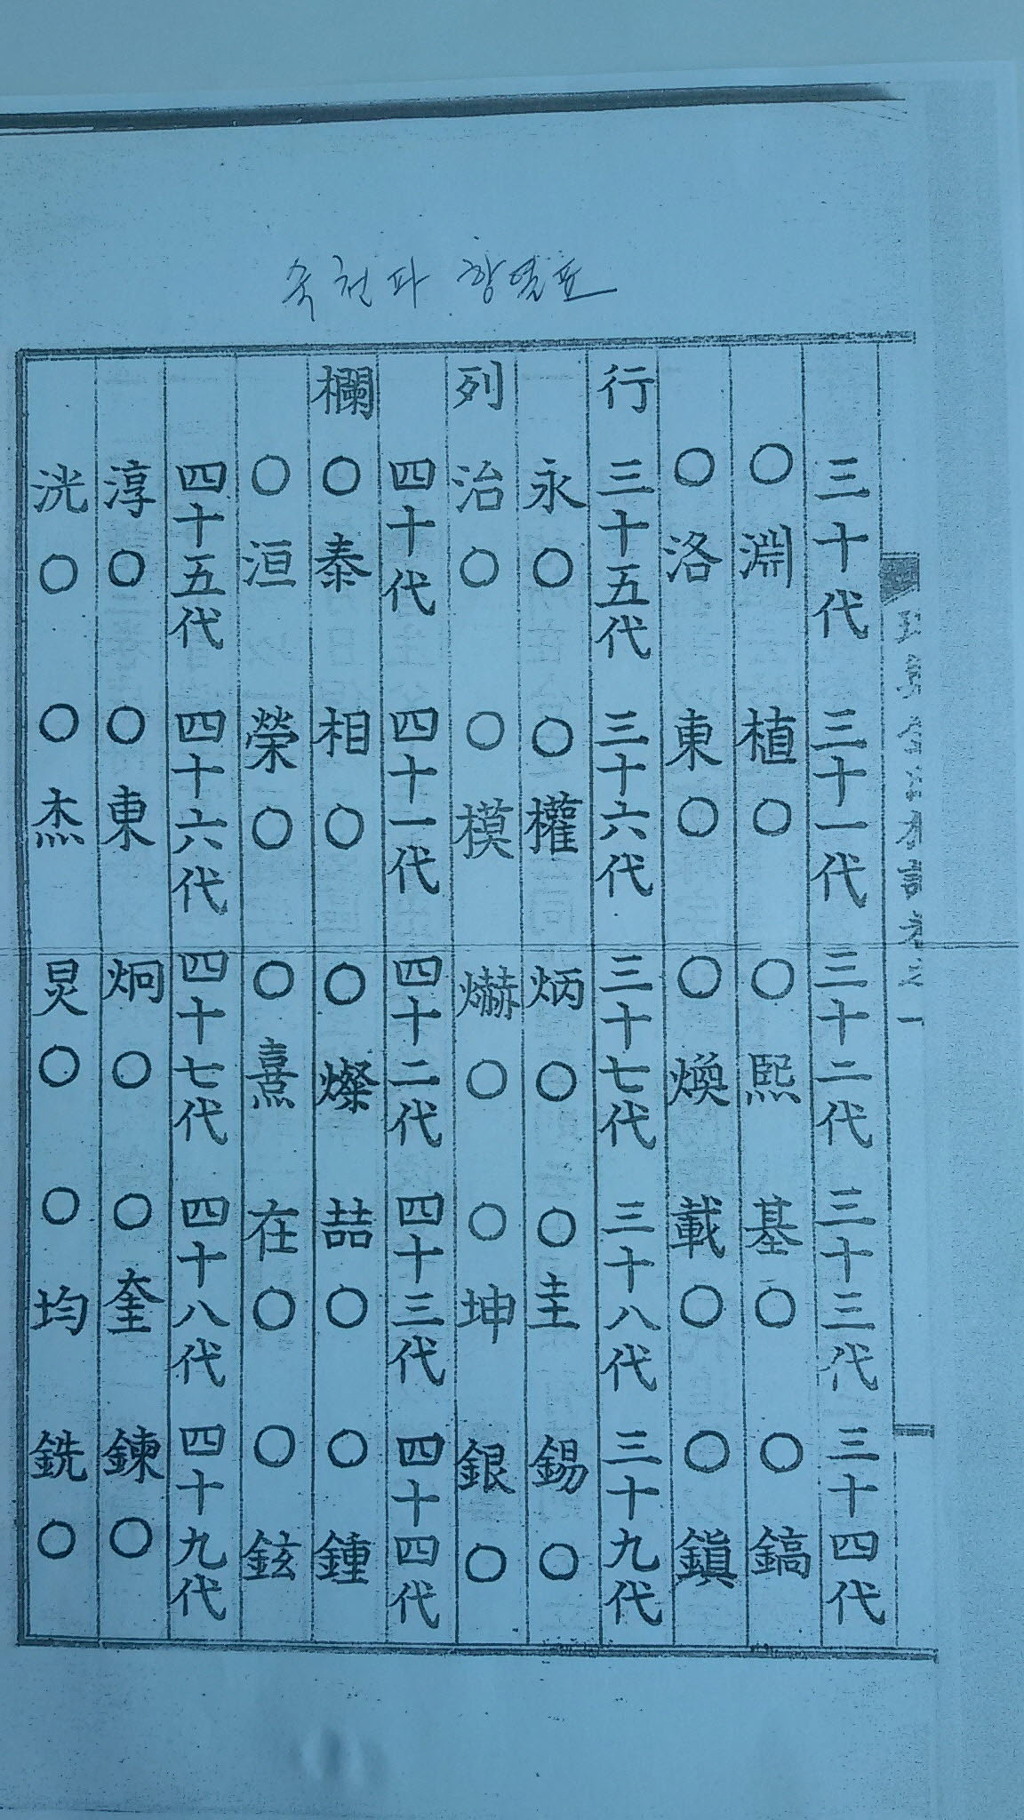 행렬표
三十代 三十一代 三十二代 三十三代 三十四代
○淵 植○ ○熙 基○ ○鎬
○洛 東○ ○煥 載○ ○鎭
行 三十五代 三十六代 三十七代 三十八代 三十九代
永○ ○權 炳○ ○圭 錫○
列 治○ ○模 爀○ ○坤 銀○
四十代 四十一代 四十二代 四十三代 四十四代
欄 ○泰 相○ ○燦 喆○ ○鍾
○洹 榮○ ○熹 在○ ○鉉
四十五代 四十六代 四十七代 四十八代 四十九代
淳○ ○東 炯○ ○奎 鍊○
洸○ ○杰 炅○ ○均 銑○